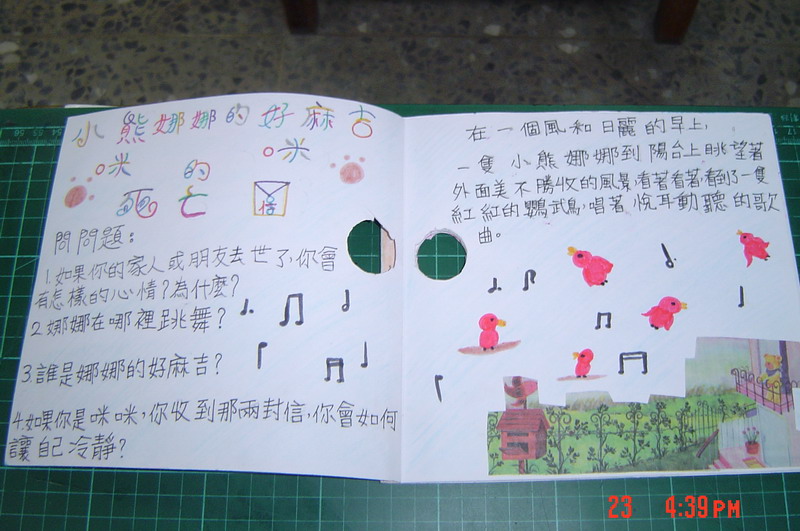 小熊娜娜的好麻吉
咪咪的
死亡信
問問題：
1.如果你的家人或朋友去世了，你會
有怎樣的心情？為什麼？
2.娜娜在哪裡跳舞？
3.誰是娜娜的好麻吉？
4.如果你是咪咪，你收到那兩封信，你會如何
讓自己冷靜？
在一個風和日麗的早上，
一隻小熊娜娜到陽台上眺望著
外面美不勝收的風景，看著看著看到了一隻
紅紅的鸚鵡鳥，唱著悅耳動聽的歌
曲。
23 4:39PM